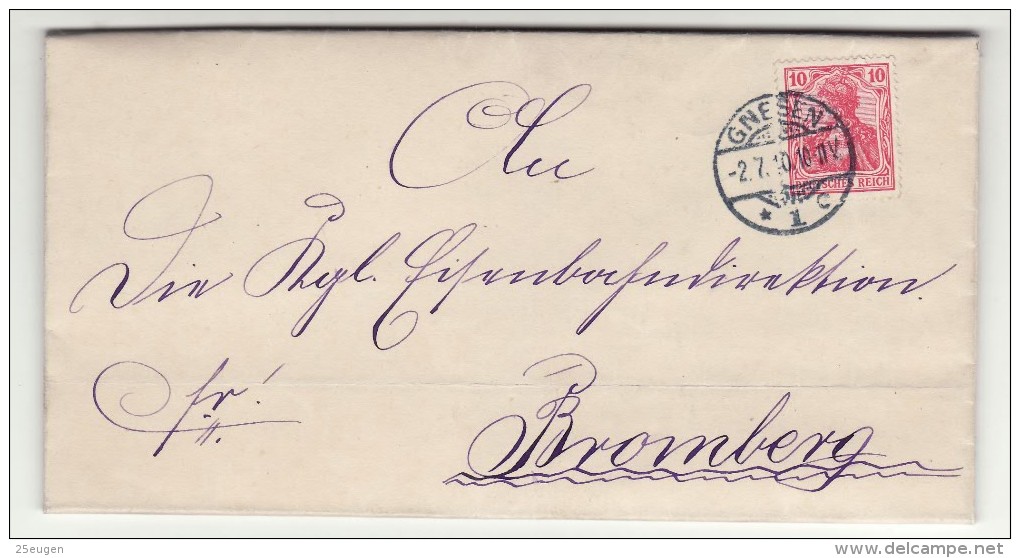 10 10
DEUTSCHES REICH
GNESEN
-2.7.10.10-11V.
* 1 c
An
Die Kgl. Eisenbahndirektion.
fr!
Bromberg
25eugen
delcampe.net